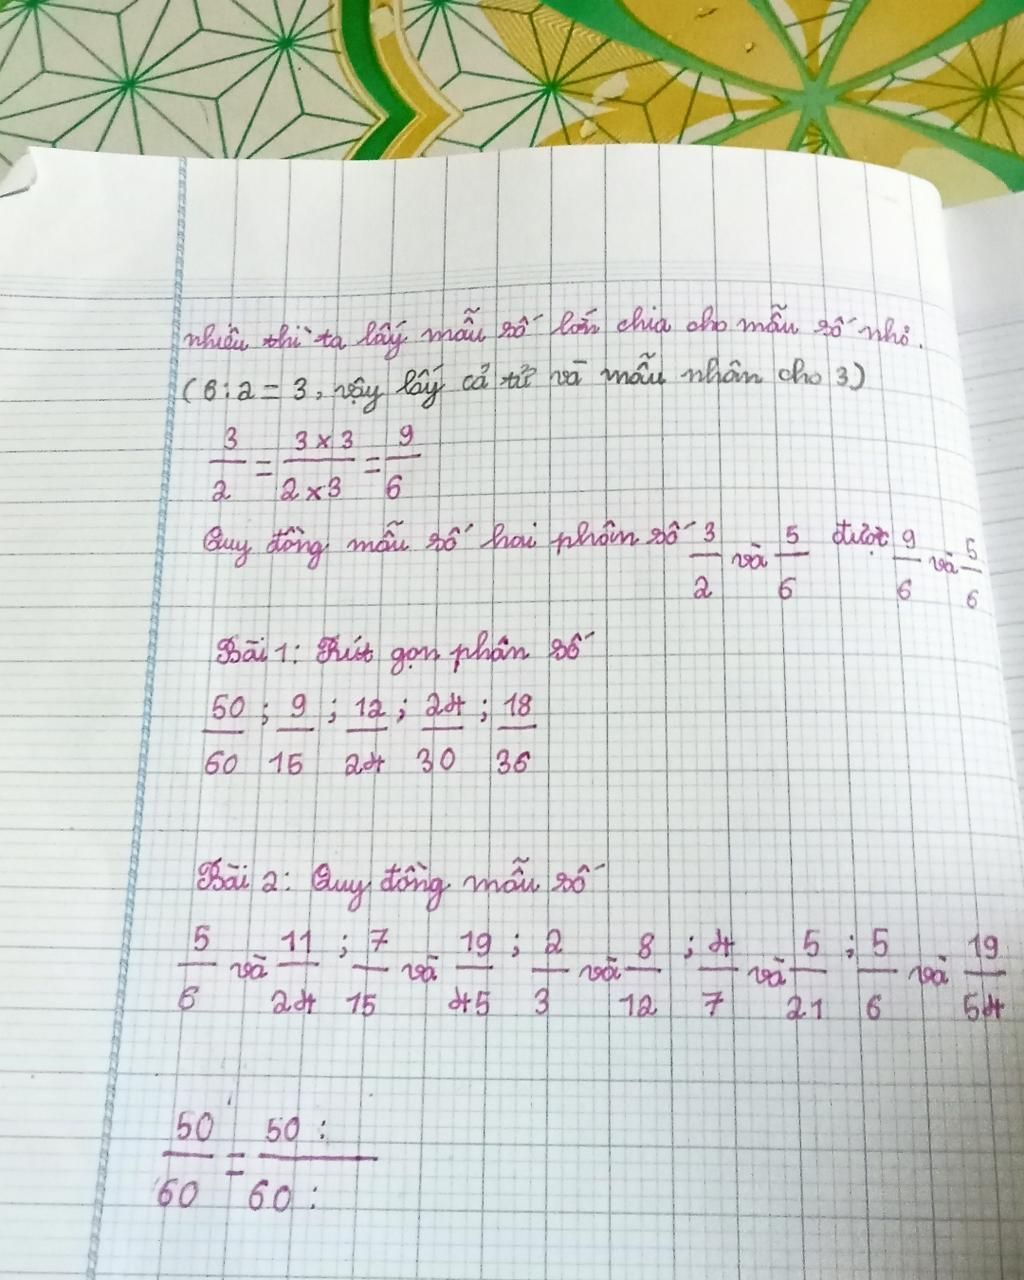 nhiêu thì ta lấy mẫu số lớn chia cho mẫu số nhỏ.
(6 : 2 = 3, vậy lấy cả tử và mẫu nhân cho 3)
3/2 = 3 x 3/2 x 3 = 9/6
Quy đồng mẫu số hai phân số 3/2 và 5/6 được 9/6 và 5/6
Bài 1: Rút gọn phân số
50/60 ; 9/15 ; 12/24 ; 24/30 ; 18/36
Bài 2: Quy đồng mẫu số
5/6 và 11/24 ; 7/15 và 19/45 ; 2/3 và 8/12 ; 4/7 và 5/21 ; 5/6 và 19/54
50/60 = 50 :/60 :